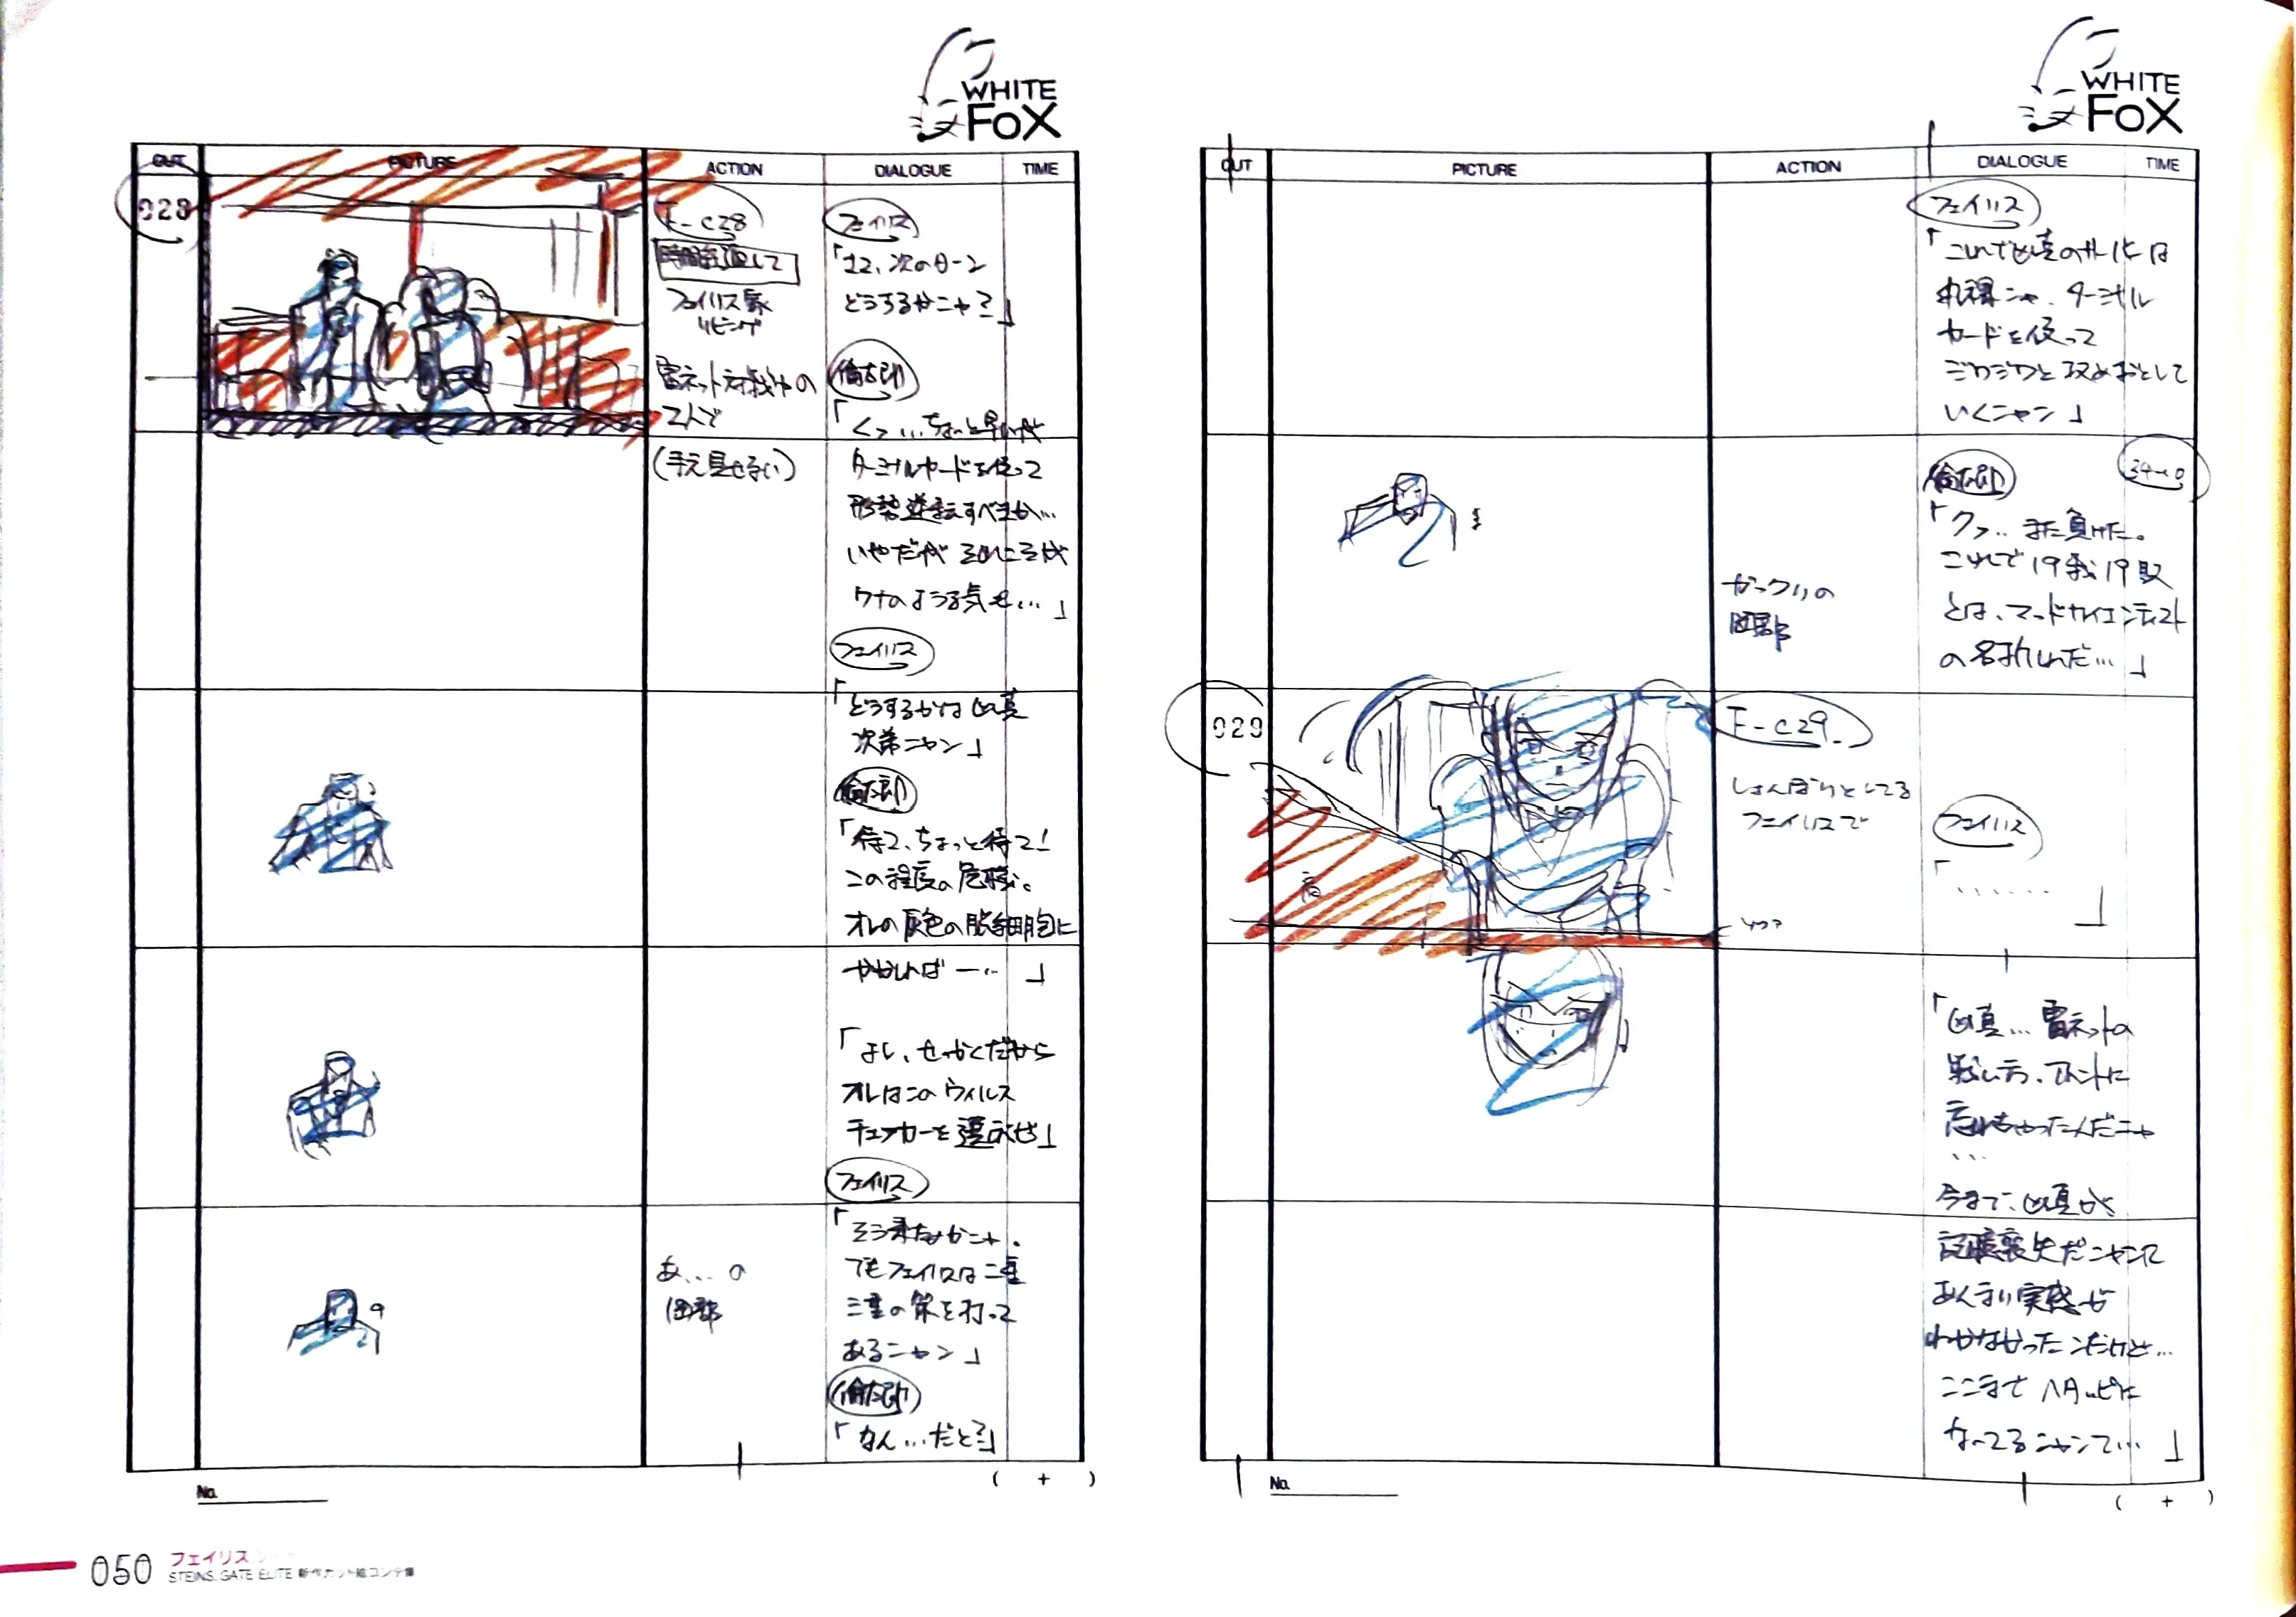 WHITE
FOX
CUT
PICTURE
ACTION
DIALOGUE
TIME
028
F-c28
時間経過して
フェイリス家
リビング
雷ネット対戦中の
2人で
(手元見せない)
フェイリス
「さて、次のターン
どうするかニャ?」
倫太郎
「くっ…ちょっと早いが
ターミナルカードを使って
形勢逆転すべきか…
いやだが それこそが
ワナのような気も…」
フェイリス
「どうするかは凶真
次第ニャン」
倫太郎
「待て、ちょっと待て!
この程度の危機。
オレの灰色の脳細胞に
かかれば―…」
「よし、せっかくだから
オレはこのウィルス
チェッカーを選ぶぜ」
フェイリス
「そう来たかニャ.
でもフェイリスは二重
三重の策を打って
あるニャン」
あ…の
岡部
倫太郎
「なん…だと?」
No.
( + )
WHITE
FOX
CUT
PICTURE
ACTION
DIALOGUE
TIME
フェイリス
「これで凶真のサーバーは
丸裸ニャ、ターミナル
カードを使って
ジワジワと攻めおとして
いくニャン」
34-10
倫太郎
「クッ‥また負けた。
これで19戦19敗
とは、マッドサイエンティスト
の名折れだ…」
ガックリの
岡部
029
F-c29
しょんぼりとしてる
フェイリスで
フェイリス
「……」
ソファ
「凶真…雷ネットの
戦い方、ホントに
忘れちゃったんだニャ
…
今まで、凶真が
記憶喪失だニャンて
あんまり実感が
わかなかったンだけど…
ここまで ヘタッピに
なってるニャンて…」
No.
( + )
050
フェイリス
STEINS;GATE ELITE 新作カット絵コンテ集